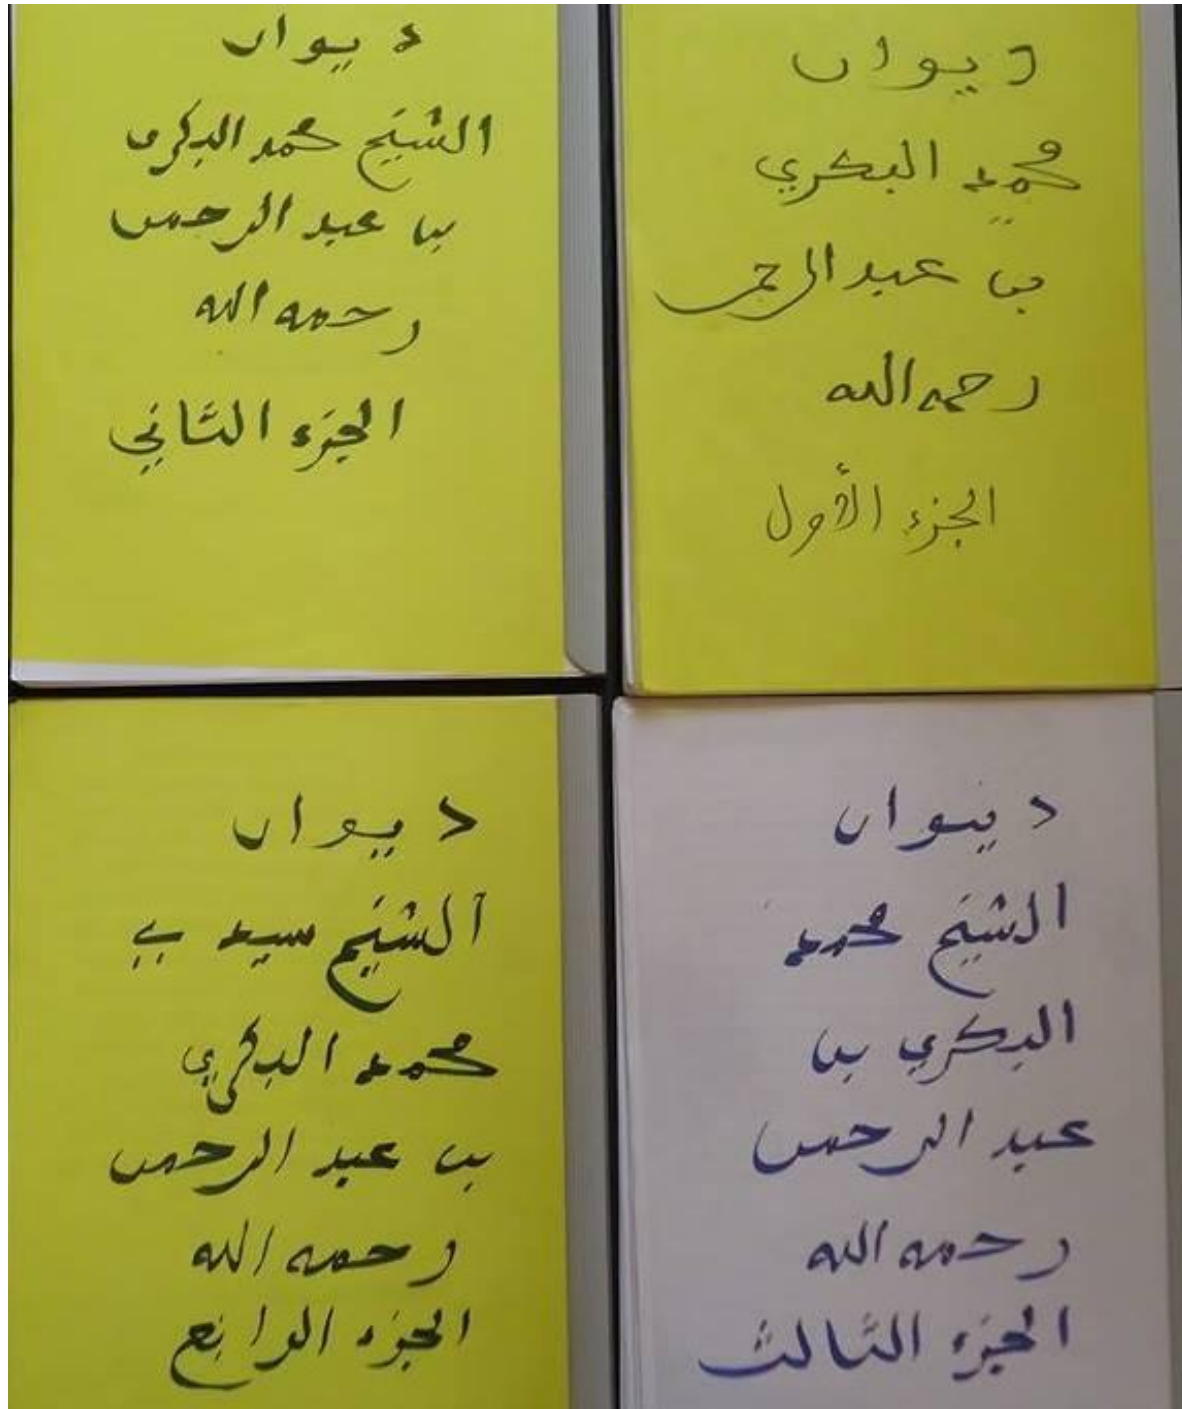 ديوان
محمد البكري
بن عبد الرحمن
رحمه الله
الجزء الأول
ديوان
الشيخ محمد البكري
بن عبد الرحمن
رحمه الله
الجزء الثاني
ديوان
الشيخ محمد
البكري بن
عبد الرحمن
رحمه الله
الجزء الثالث
ديوان
الشيخ سيد بي
محمد البكري
بن عبد الرحمن
رحمه الله
الجزء الرابع